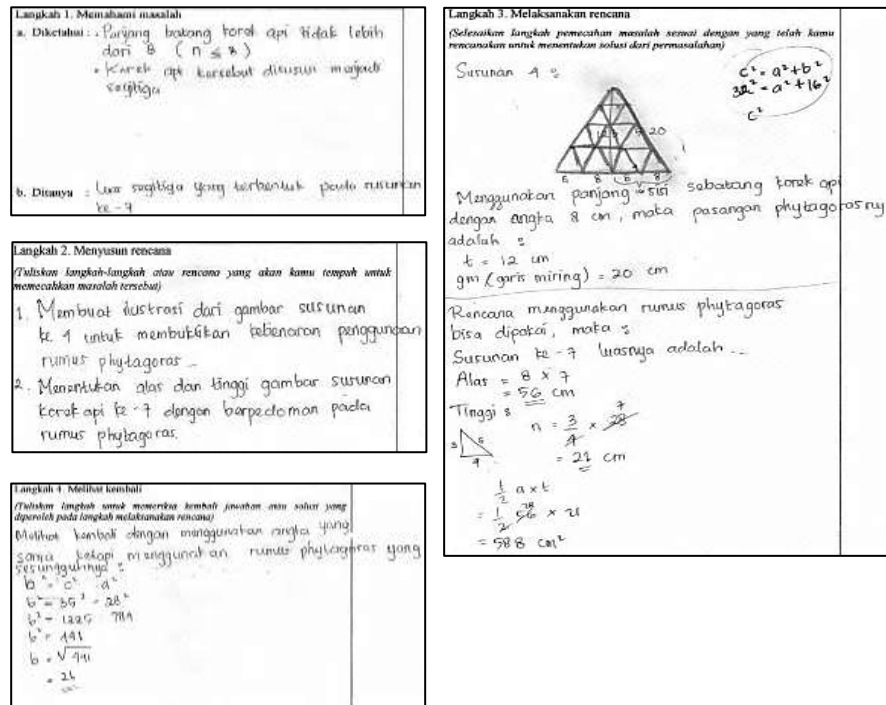 Langkah 1. Memahami masalah
a. Diketahui : • Panjang batang korek api tidak lebih
dari 8 ( n ≤ 8 )
• Korek api tersebut disusun menjadi
segitiga
b. Ditanya : Luas segitiga yang terbentuk pada susunan
ke - 7
Langkah 2. Menyusun rencana
(Tuliskan langkah-langkah atau rencana yang akan kamu tempuh untuk
memecahkan masalah tersebut)
1. Membuat ilustrasi dari gambar susunan
ke 4 untuk membuktikan kebenaran penggunaan
rumus phytagoras
2. Menentukan alas dan tinggi gambar susunan
korek api ke - 7 dengan berpedoman pada
rumus phytagoras.
Langkah 4. Melihat kembali
(Tuliskan langkah untuk memeriksa kembali jawaban atau solusi yang
diperoleh pada langkah melaksanakan rencana)
Melihat kembali dengan menggunakan angka yang
sama tetapi menggunakan rumus phytagoras yang
sesungguhnya :
b² = c² a²
b² = 35² - 28²
b² = 1225
b² = 441
b = √441
= 21
Langkah 3. Melaksanakan rencana
(Selesaikan langkah pemecahan masalah sesuai dengan yang telah kamu
rencanakan untuk menentukan solusi dari permasalahan)
Susunan 4 :
c² = a² + b²
32² = a² + 16²
c²
20
8 8
Menggunakan panjang sisi sebatang korek api
dengan angka 8 cm, maka pasangan phytagorasny
adalah :
t = 12 cm
gm (garis miring) = 20 cm
Rencana menggunakan rumus phytagoras
bisa dipakai, maka :
Susunan ke - 7 luasnya adalah ...
Alas = 8 x 7
= 56 cm
Tinggi :
3 5
4
n = 3/4 x 28 7
= 21 cm
1/2 a x t
= 1/2 56 28 x 21
= 588 cm²